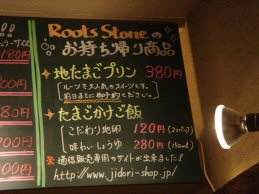 Roots Stoneの
お持ち帰り商品
地たまごプリン 380円
ルーツで大人気のスイーツです。
前日までに御予約ください。
たまごかけご飯
こだわり地卵 120円
味わいしょうゆ 280円
※通信販売専用のサイトが出来ました!
http://www.jidori-shop.jp/
180円
00円
80円
200円